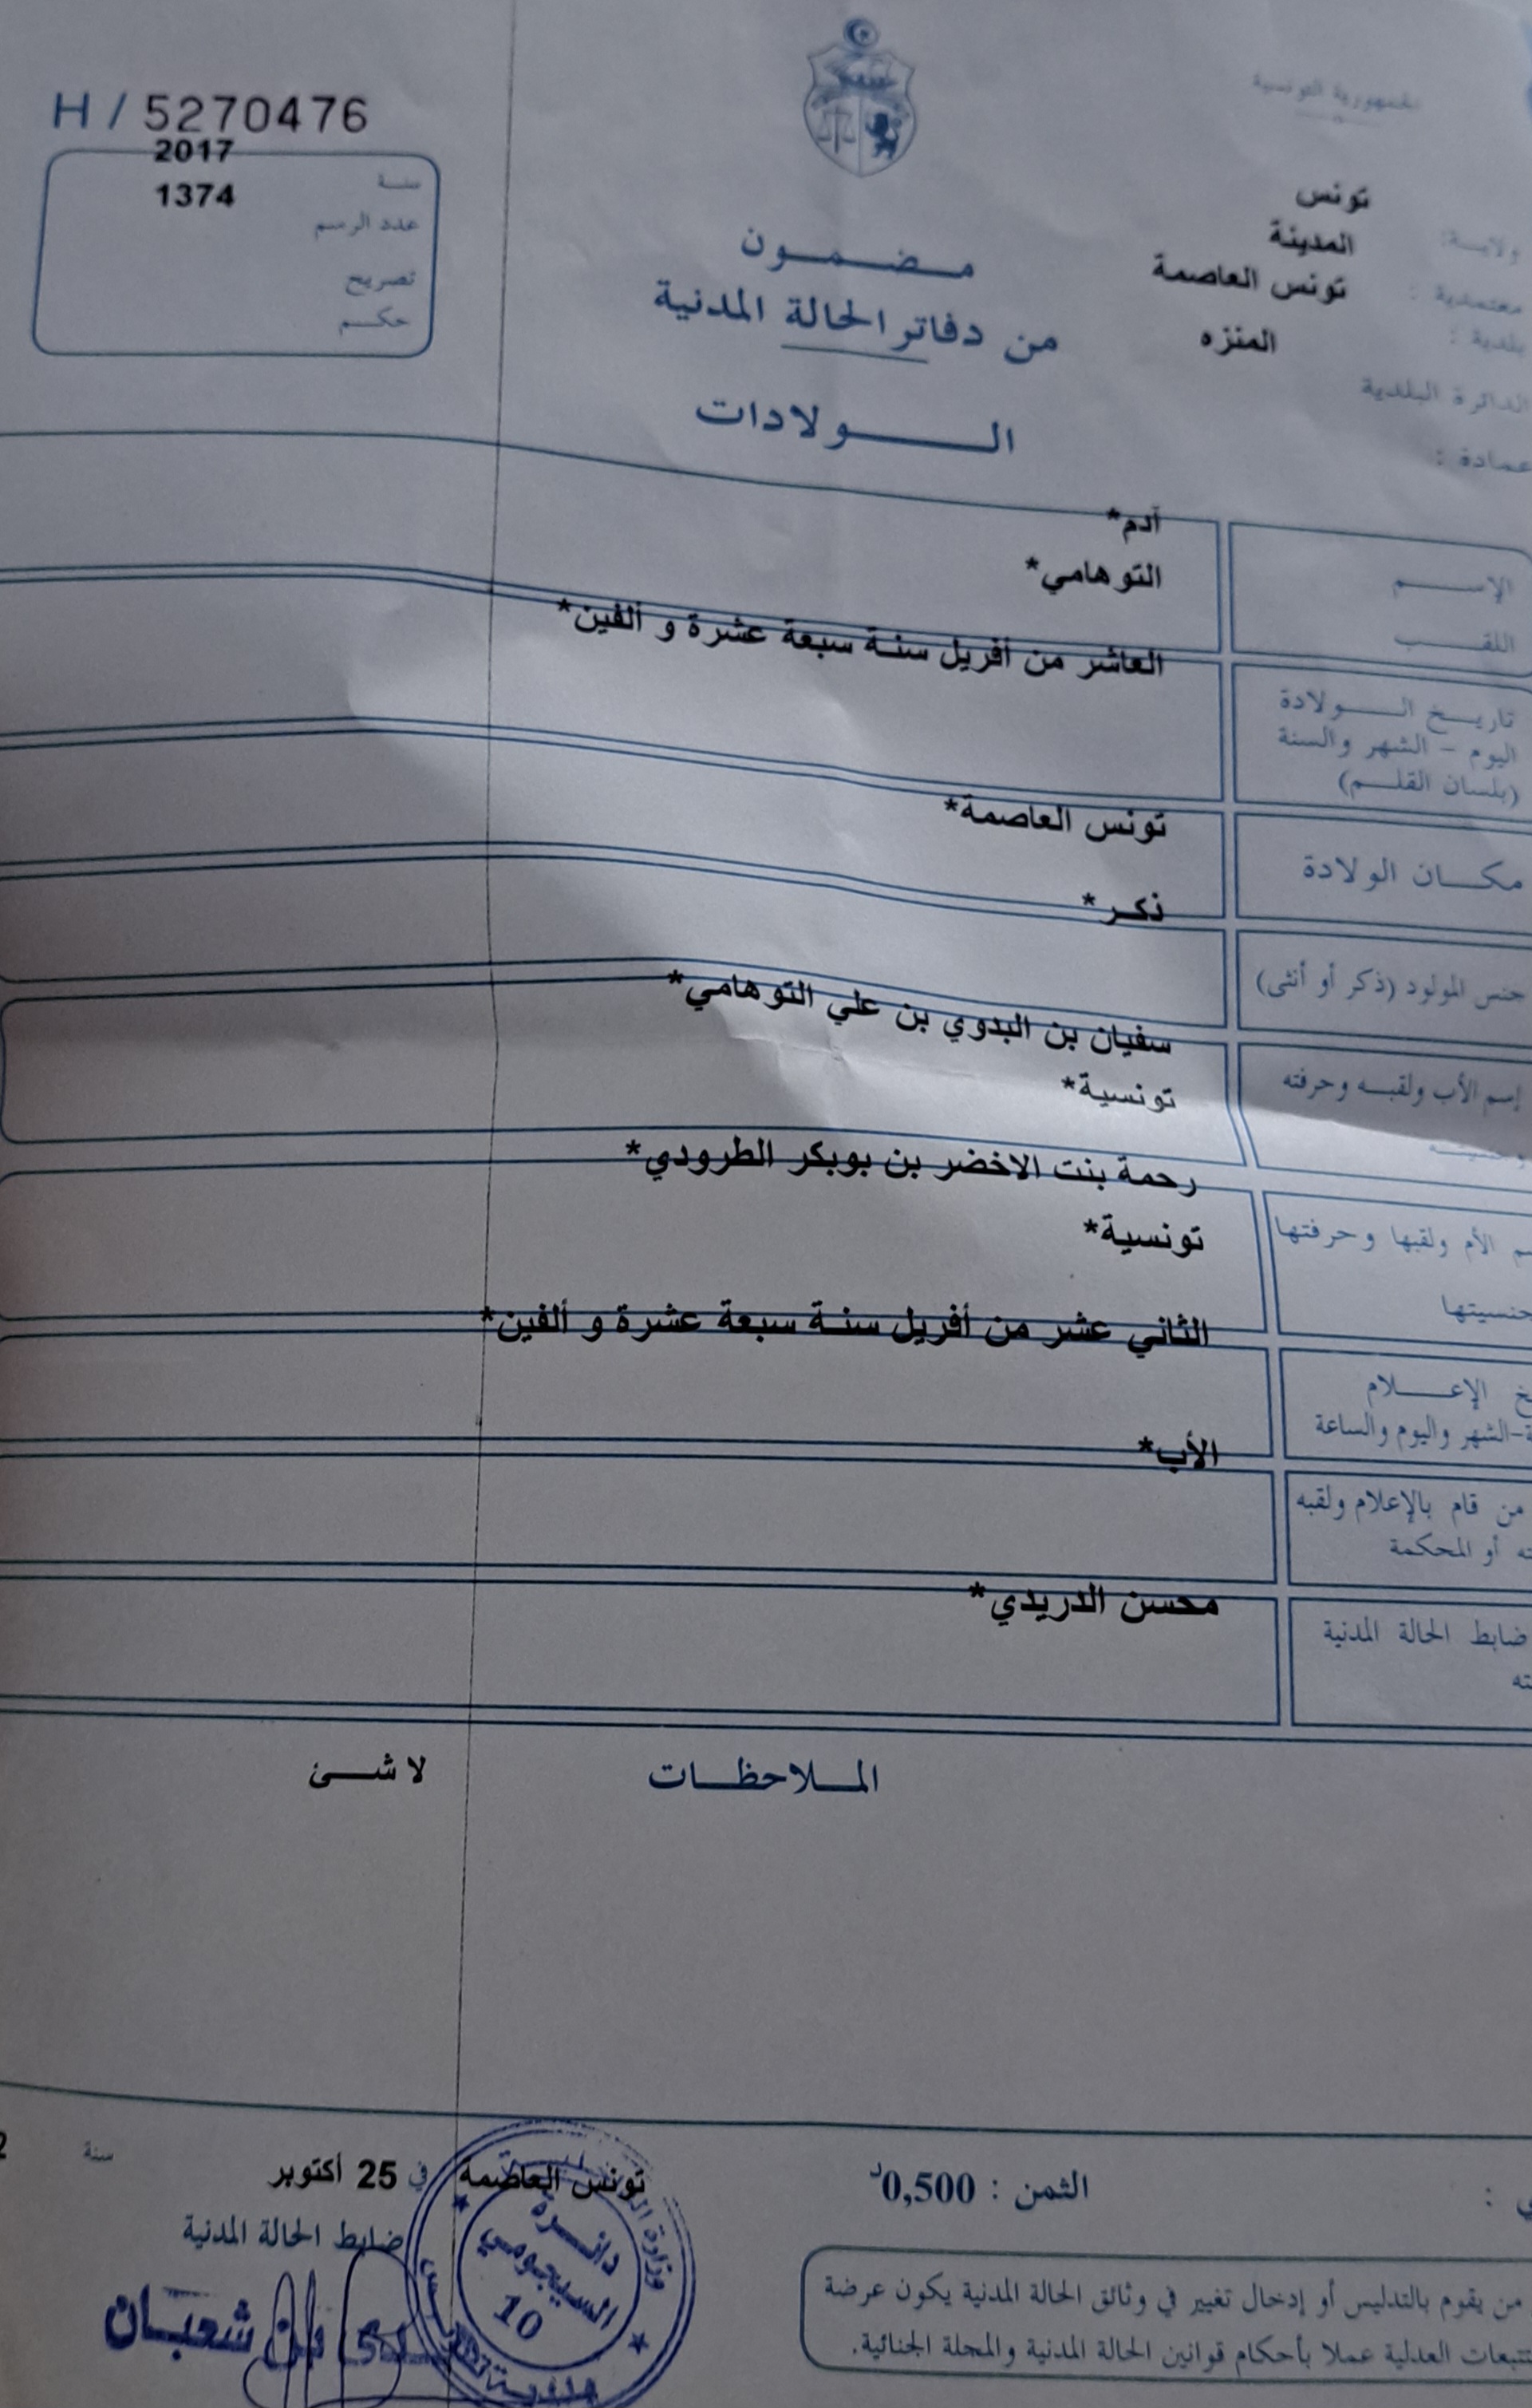 الجمهورية التونسية
H / 5270476
سنة 2017
عدد الرسم 1374
تصريح
حكم
ولاية: تونس
معتمدية : المدينة
بلدية : تونس العاصمة
الدائرة البلدية المنزه
عمادة :
مضمون
من دفاتر الحالة المدنية
الولادات
الإسم آدم*
اللقب التوهامي*
تاريخ الولادة العاشر من أفريل سنة سبعة عشرة و ألفين*
اليوم - الشهر والسنة
(بلسان القلم)
مكان الولادة تونس العاصمة*
جنس المولود (ذكر أو أنثى) ذكر*
إسم الأب ولقبه وحرفته سفيان بن البدوي بن علي التوهامي*
تونسية*
الأم ولقبها وحرفتها رحمة بنت الاخضر بن بوبكر الطرودي*
جنسيتها تونسية*
الإعلام الثاني عشر من أفريل سنة سبعة عشرة و ألفين*
-الشهر واليوم والساعة
من قام بالإعلام ولقبه الأب*
أو المحكمة
ضابط الحالة المدنية محسن الدريدي*
الملاحظات لا شئ
الثمن : 0,500د
تونس العاصمة في 25 أكتوبر سنة
ضابط الحالة المدنية
بن شعبان
دائرة
السيجومي
10
من يقوم بالتدليس أو إدخال تغيير في وثائق الحالة المدنية يكون عرضة
للتتبعات العدلية عملا بأحكام قوانين الحالة المدنية والمجلة الجنائية.